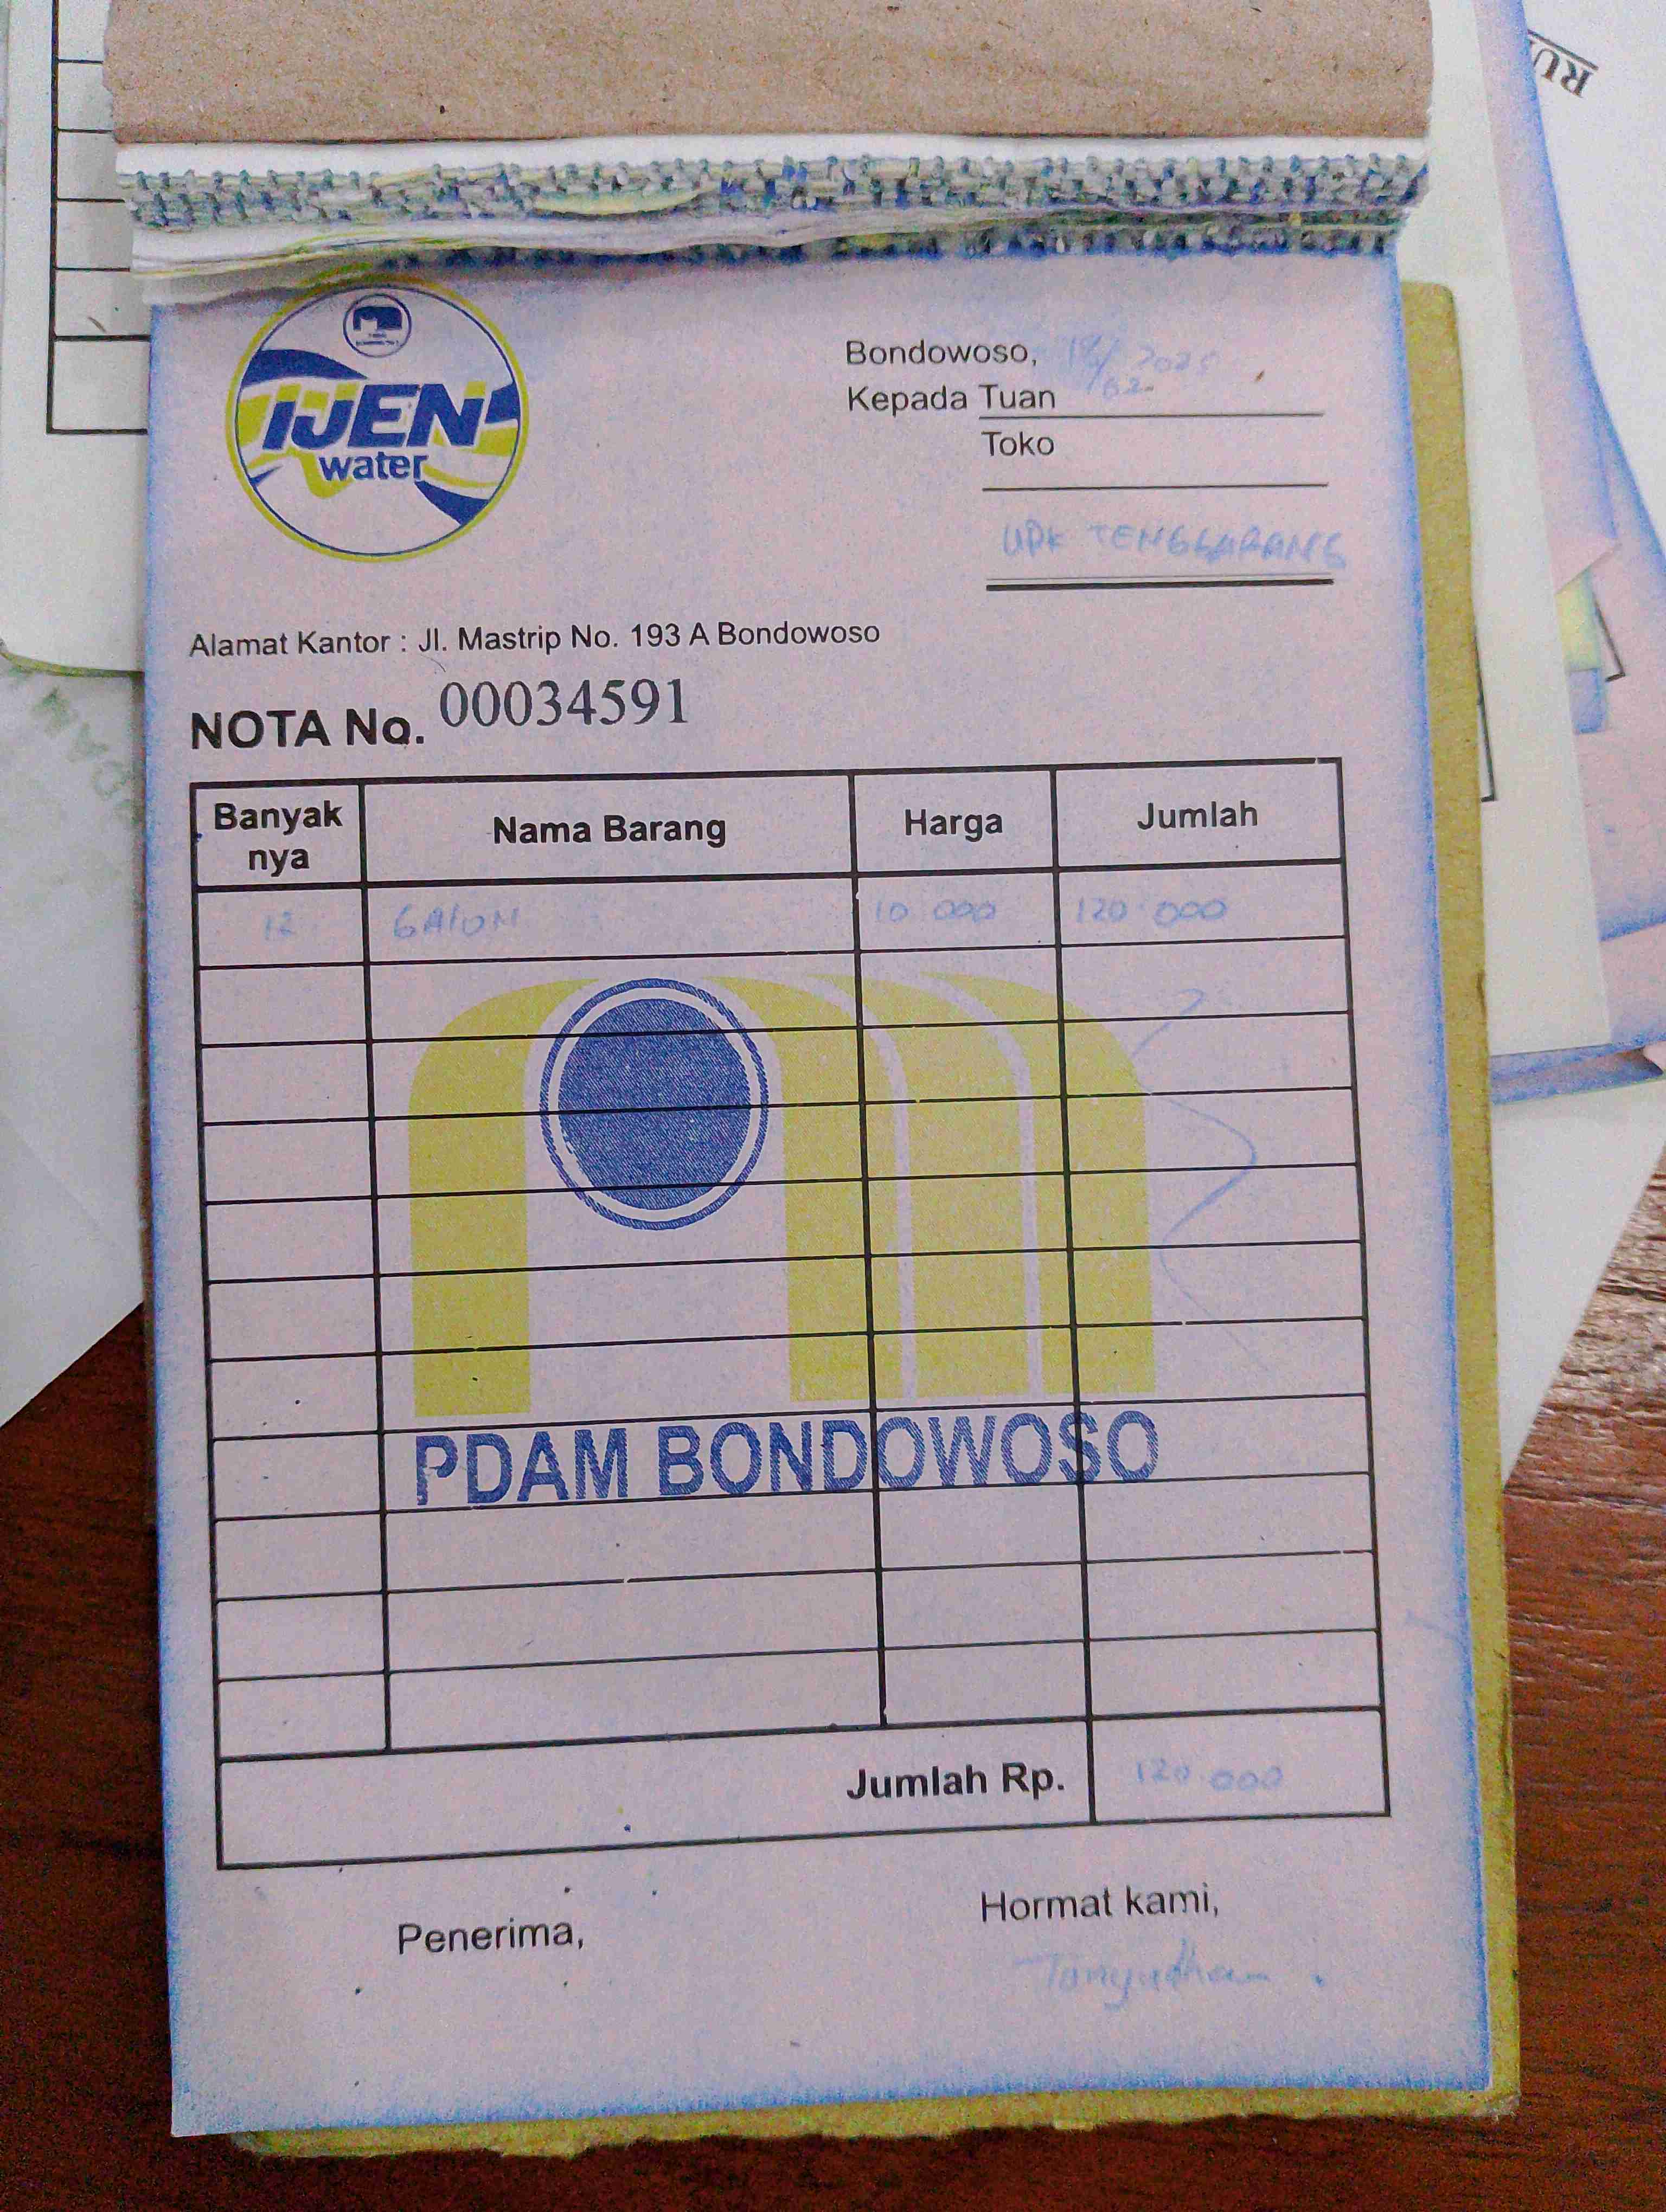 RU
IJEN
water
Bondowoso, 18/02 2025
Kepada Tuan
Toko
UPK TENGGARANG
Alamat Kantor : Jl. Mastrip No. 193 A Bondowoso
NOTA No. 00034591
Banyak nya Nama Barang Harga Jumlah
12 GALON 10.000 120.000
PDAM BONDOWOSO
Jumlah Rp. 120.000
Penerima, Hormat kami,